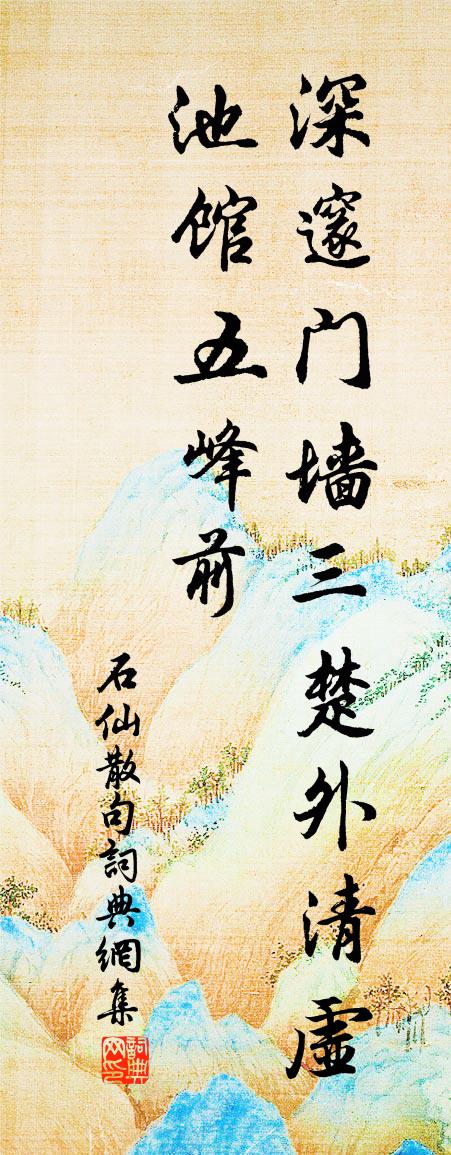 深邃门墙三楚外清虚
池馆五峰前
石仙散句詞典網集
詞典网印